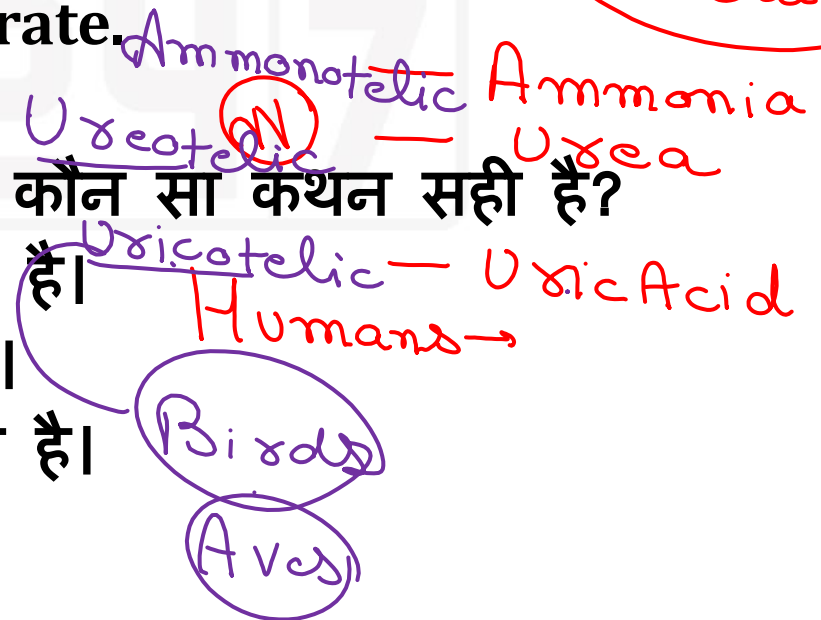 rate.
Ammonotelic — Ammonia
N
Ureotelic — Urea
कौन सा कथन सही है?
Uricotelic — Uric Acid
है।
Humans→
।
है।
Birds
Aves